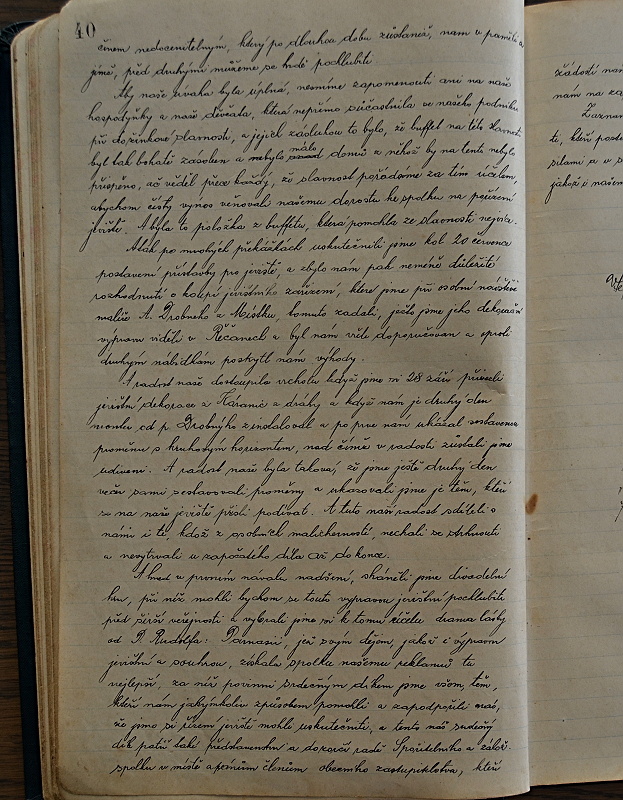 40
činem nedocenitelným, který po dlouhou dobu zůstaneš, nam v paměti a
jímž, před druhými můžeme se hrdě pochlubiti
Aby naše úvaha byla úplná, nesmíme zapomenouti ani na naše
hospodyňky a naše děvčata, která nepřímo súčastnila se našeho podniku
při dožínkové slavnosti, a jejich zásluhou to bylo, že buffet na této slavnosti
málo
byl tak bohatě zásoben a nebylo domů z něhož by na tento nebylo
přispěno, ač věděl přece každý, že slavnost pořádáme za tím účelem,
abychom čistý výnos věnovali našemu dorostu ke spolku na pořízení
jeviště. A byla to položka z buffetu, která pomohla ze slavnosti nejvíce.
A tak po mnohých překážkách uskutečnili jsme kol 20 července
postavení přístavby pro jeviště, a zbylo nám pak neméně důležité
rozhodnutí o koupi jevištního zařízení, které jsme při osobní návštěvě
malíře A. Drobného z Mistku, tomuto zadali, ježto jsme jeho dekorační
výpravu viděli v Řečanech a byl nám vřele doporučován a oproti
druhým nabídkám poskytl nám výhody.
A radost naše dostoupila vrcholu když jsme si 28 září přivezli
jevištní dekorace z dráhy a když nám je druhý den
montér od p. Drobného zinstaloval a po prve nám ukázal sestavenou
proměnu s kruhovým horizontem, nad čímž v radosti zůstali jsme
udiveni. A radost naše byla taková, že jsme ještě druhý den
večer sami sestavovali proměny a ukazovali jsme je těm, kteří
se na naše jeviště přišli podívat. A tuto naši radost sdíleli s
námi i ti, kdož z osobních malicherností, nechali se strhnouti
a nevytrvali u započatého díla až do konce.
A hned v prvním návalu nadšení, sháněli jsme divadelní
hru, při níž mohli bychom se touto výpravou jevištní pochlubiti
před širší veřejností a vybrali jsme si k tomu účelu drama lásky
od P. Rudolfa: Parnasie, jež svým dějem, jakož i výpravou
jevištní a souhrou, získala spolku našemu reklamu tu
nejlepší, za níž povinni srdečným díkem jsme všem těm,
kteří nám jakýmkoliv způsobem pomohli a zapodpořili nás,
že jsme si zřízení jeviště mohli uskutečniti, a tento náš srdečný
dík patří také představenstvu a dozorčí radě Spořitelního a zálož.
spolku v místě a pánům členům obecního zastupitelstva, kteří
žádostí
nám na
Zaznam
ti, kteří
silami a v
jakož i našem